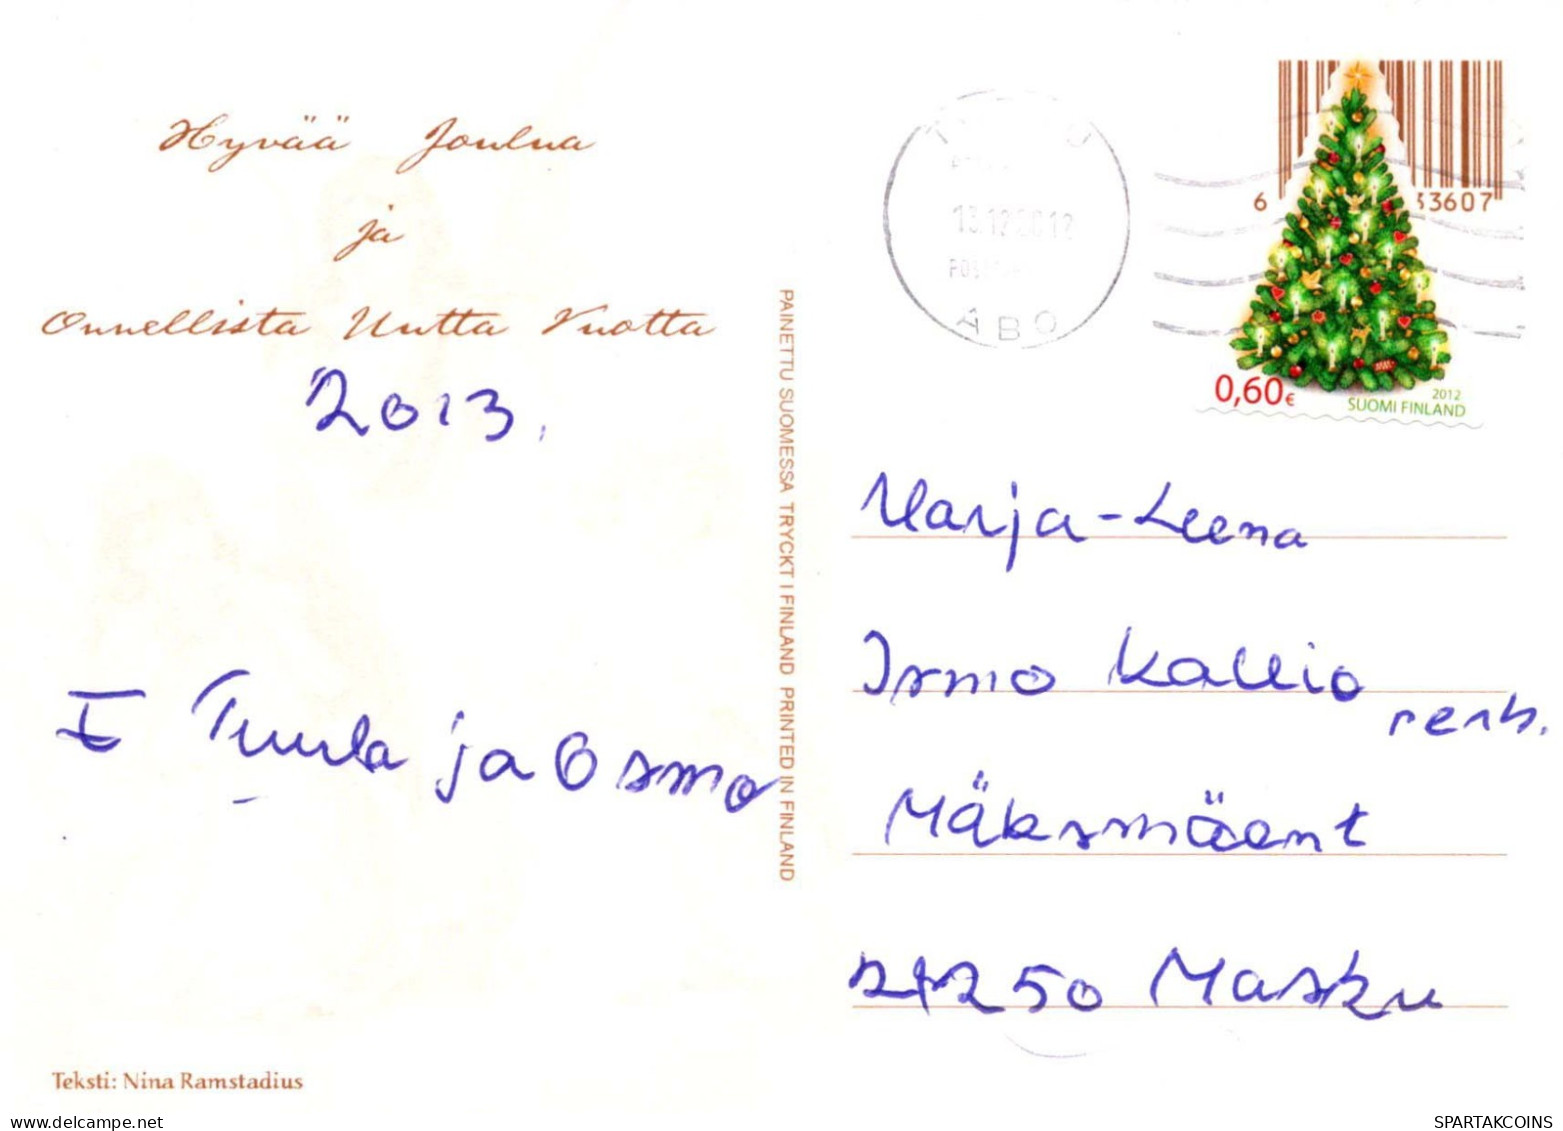 Hyvää Joulua
ja
Onnellista Uutta Vuotta
2013.
T Tuula ja Osmo
Teksti: Nina Ramstadius
PAINETTU SUOMESSA TRYCKT I FINLAND PRINTED IN FINLAND
13.12.2012
ABO
6 33607
0,60€
2012
SUOMI FINLAND
Marja-Leena
Irmo Kallio
Mäksmäent
21250 Masku
delcampe.net
SPARTAKCOINS